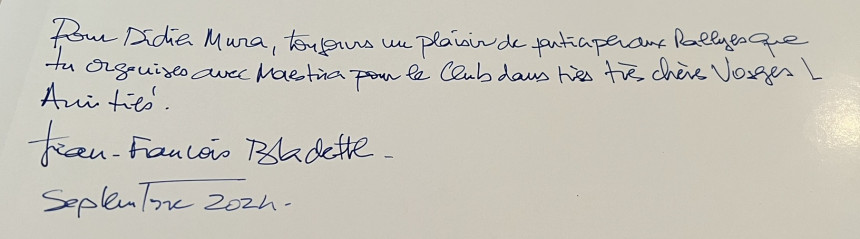 Pour Didier Mura, toujours un plaisir de participer aux Rallyes que
tu organises avec Maestria pour le Club dans tes très chères Vosges !
Amitiés.
Jean-François Bladette -
Septembre 2024 -